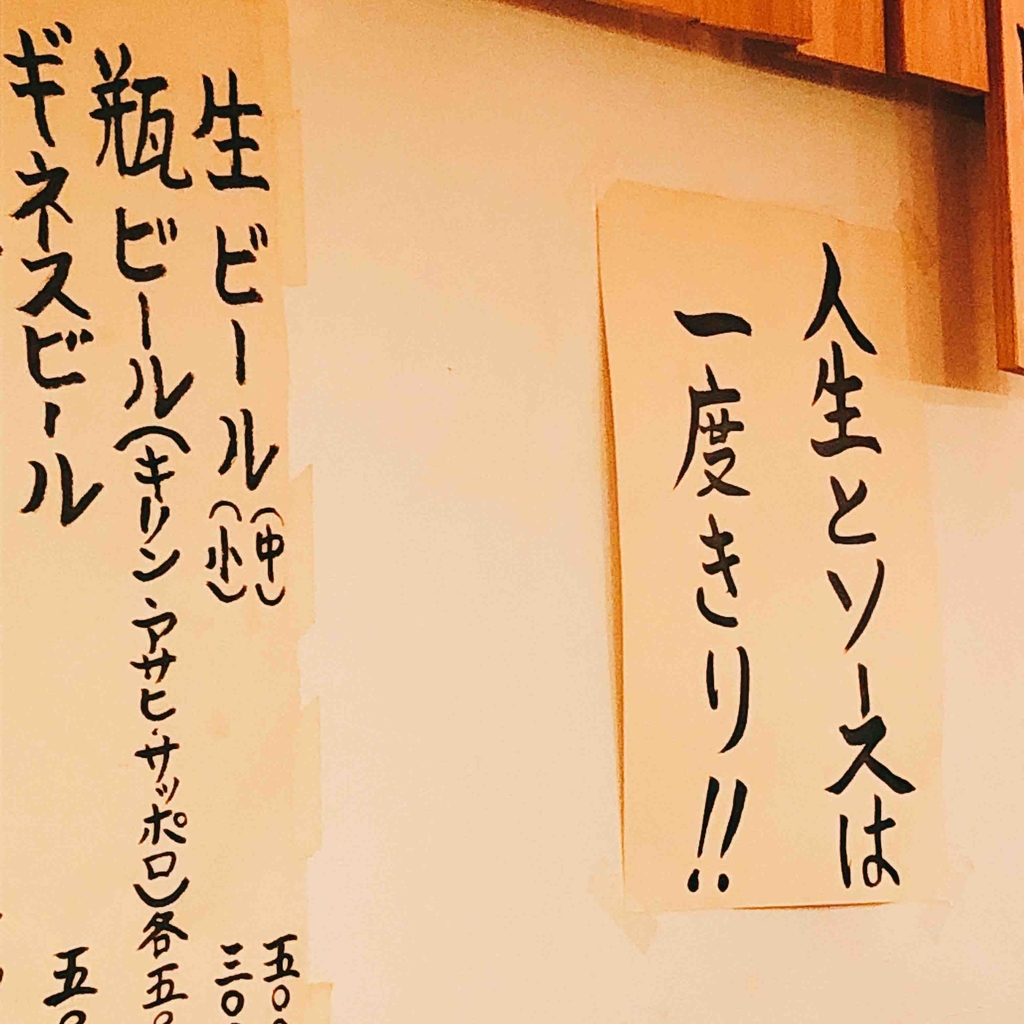 人生とソースは
一度きり!!
生ビール(中)五〇〇
(小)三〇
瓶ビール(キリン・アサヒ・サッポロ)各五〇
ギネスビール 五〇